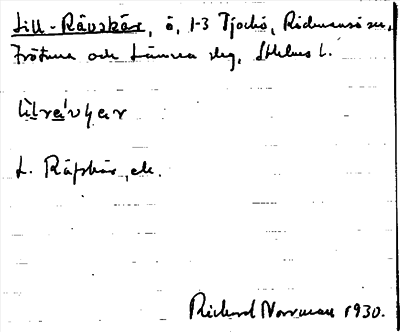 Lill-Rävskär, ö, 1-3 Tjockö, Rådmansö sn,
Frötuna och Länna slg, Sthlms l.
L. Räfskär, ek.
Richard Norrman 1930.